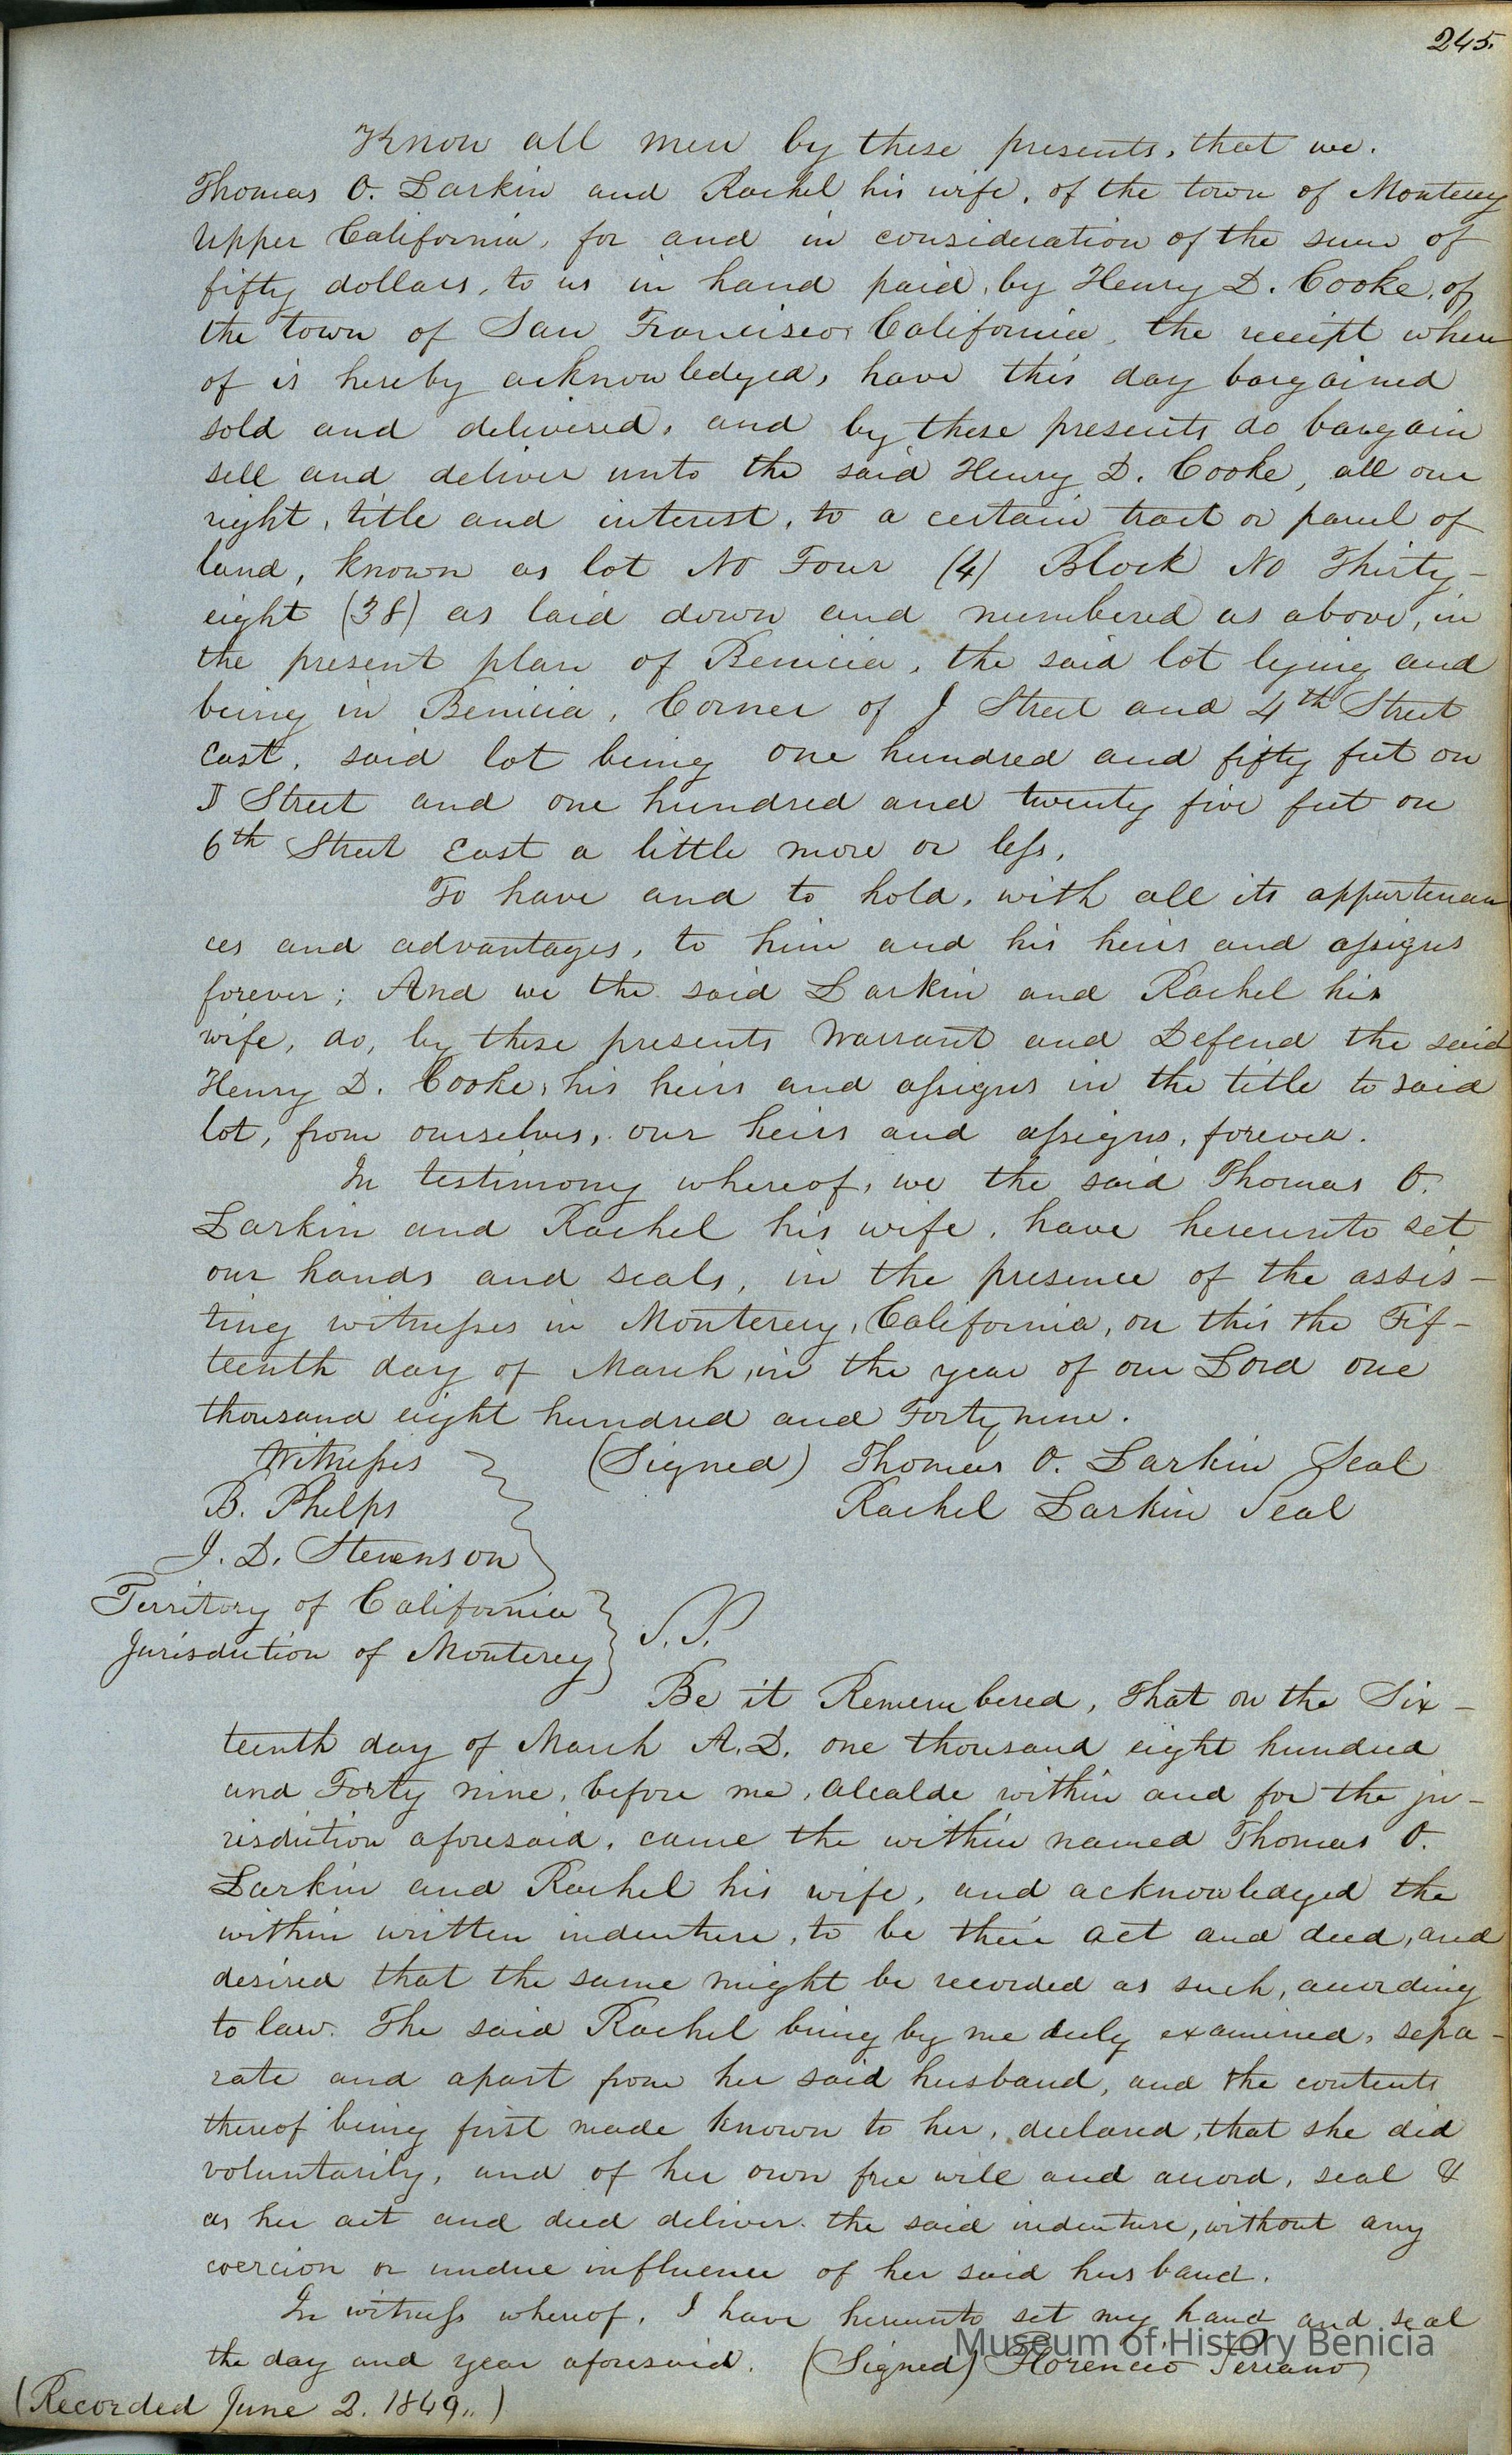 245.
Know all men by these presents, that we.
Thomas O. Larkin and Rachel his wife, of the town of Monterey
Upper California, for and in consideration of the sum of
fifty dollars, to us in hand paid, by Henry D. Cooke, of
the town of San Francisco, California, the receipt where
of is hereby acknowledged, have this day bargained
sold and delivered, and by these presents do bargain
sell and deliver unto the said Henry D. Cooke, all our
right, title and interest, to a certain tract or parcel of
land, known as lot No Four (4) Block No Thirty-
eight (38) as laid down and numbered as above, in
the present plan of Benicia, the said lot lying and
being in Benicia, Corner of J Street and 4th Street
East, said lot being one hundred and fifty feet on
J Street and one hundred and twenty five feet on
6th Street East a little more or less,
To have and to hold, with all its appurtenan
ces and advantages, to him and his heirs and assigns
forever; And we the said Larkin and Rachel his
wife, do, by these presents Warrant and Defend the said
Henry D. Cooke, his heirs and assigns in the title to said
lot, from ourselves, our heirs and assigns, forever.
In testimony whereof, we the said Thomas O.
Larkin and Rachel his wife, have hereunto set
our hands and seals, in the presence of the assis-
ting witnesses in Monterey, California, on this the Fif-
teenth day of March, in the year of our Lord one
thousand eight hundred and Forty nine.
Witnesses (Signed) Thomas O. Larkin Seal
B. Phelps Rachel Larkin Seal
J. D. Stevenson
Territory of California
Jurisdiction of Monterey S.S.
Be it Remembered, That on the Six-
teenth day of March A.D. one thousand eight hundred
and Forty nine, before me, Alcalde within and for the ju-
risdiction aforesaid, came the within named Thomas O.
Larkin and Rachel his wife, and acknowledged the
within written indenture, to be their act and deed, and
desired that the same might be recorded as such, according
to law. The said Rachel being by me duly examined, sepa-
rate and apart from her said husband, and the contents
thereof being first made known to her, declared, that she did
voluntarily, and of her own free will and accord, seal &
as her act and deed deliver the said indenture, without any
coercion or undue influence of her said husband.
In witness whereof, I have hereunto set my hand and seal
the day and year aforesaid. (Signed) Florencio Serrano
(Recorded June 2. 1849,,)
Museum of History Benicia